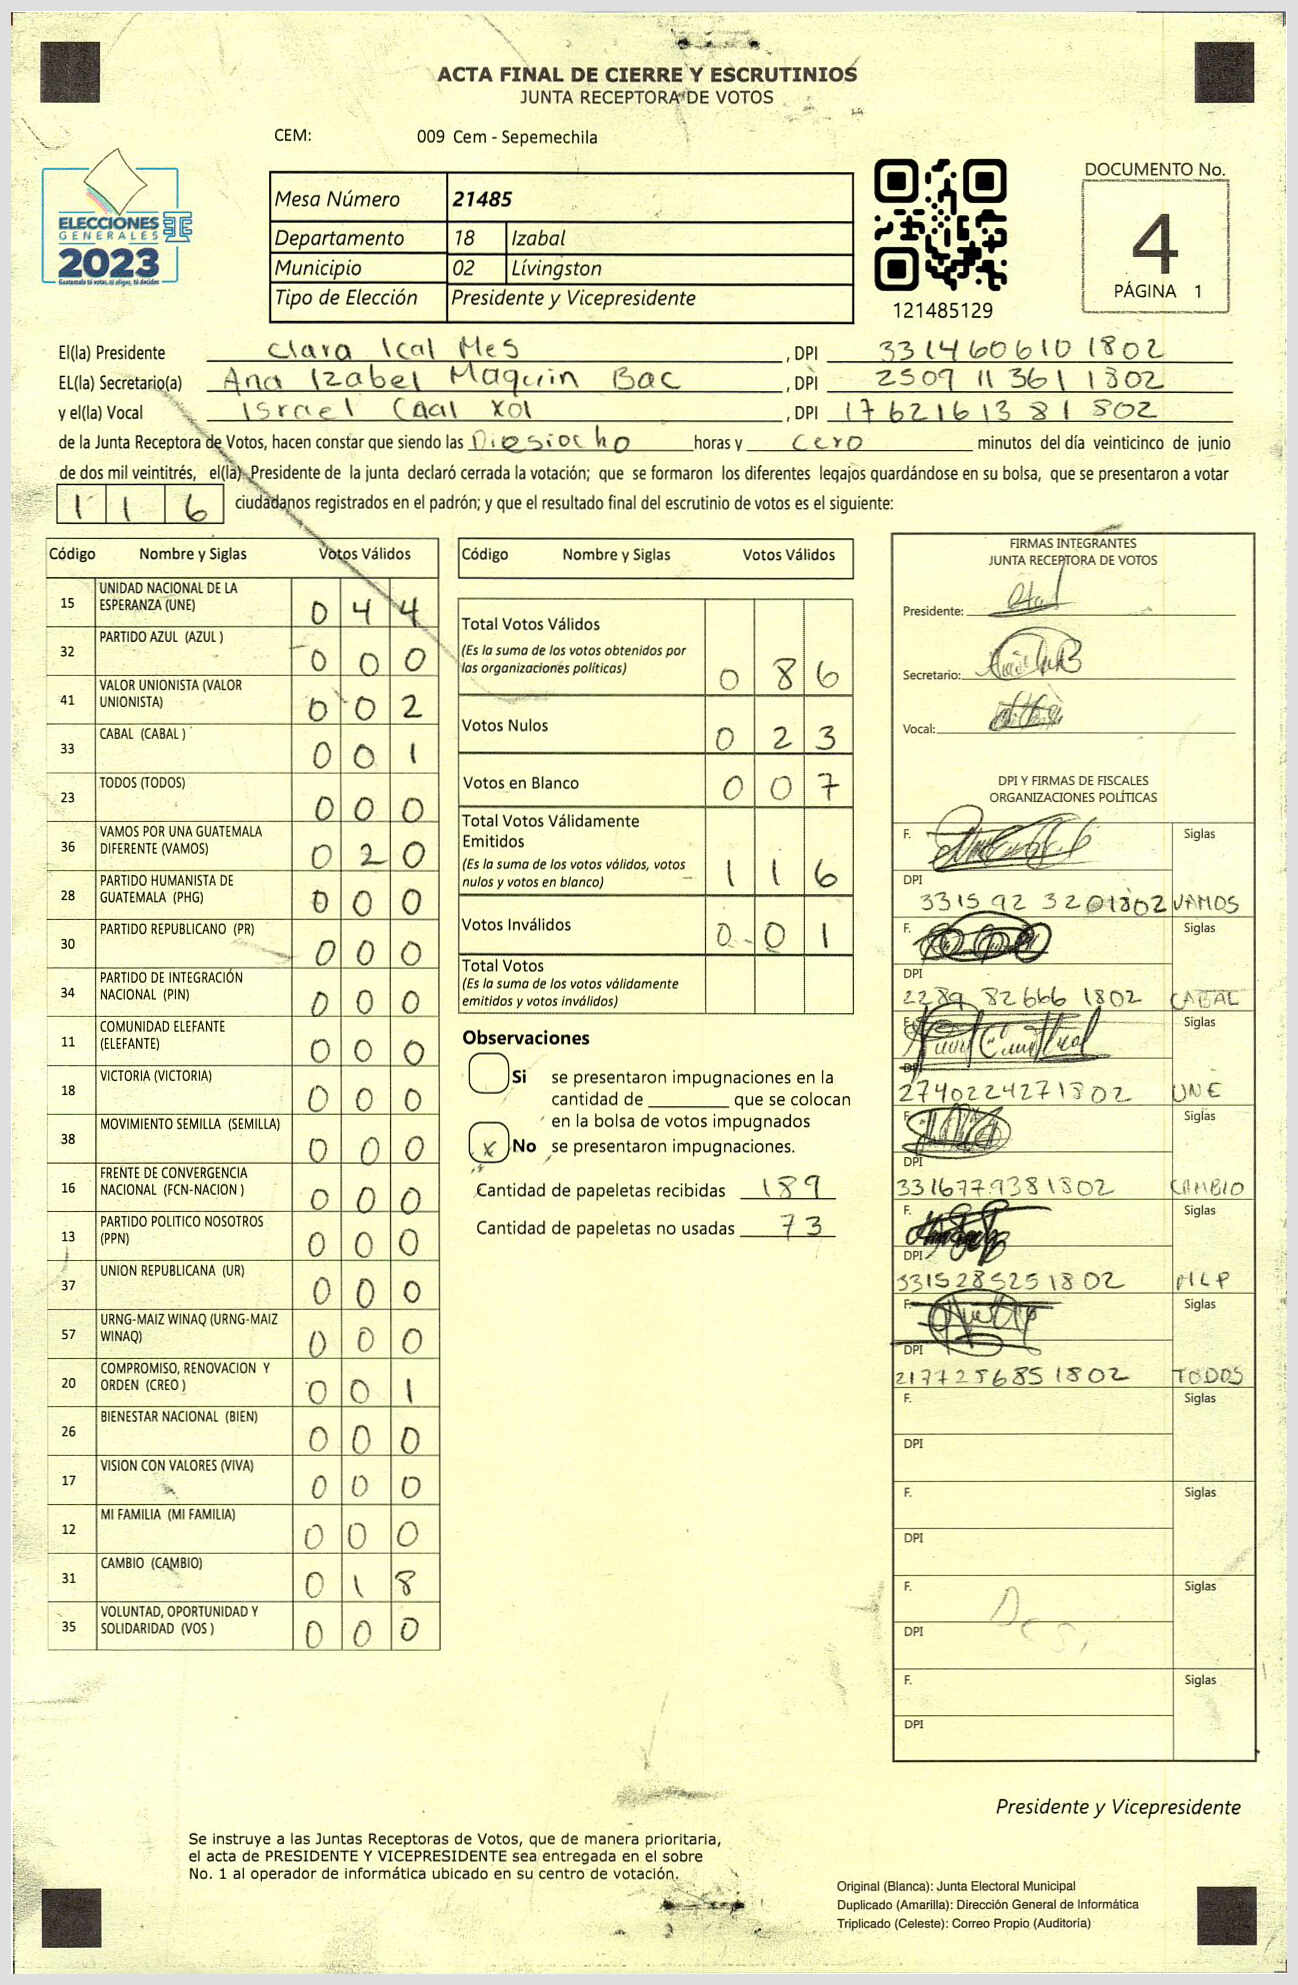 ACTA FINAL DE CIERRE Y ESCRUTINIOS
JUNTA RECEPTORA DE VOTOS
CEM: 009 Cem - Sepemechila
ELECCIONES
GENERALES
2023
Guatemala tú votas, tú eliges, tú decides
Mesa Número 21485
Departamento 18 Izabal
Municipio 02 Lívingston
Tipo de Elección Presidente y Vicepresidente
121485129
DOCUMENTO No.
4
PÁGINA 1
El(la) Presidente Clara Ical Mes , DPI 3314606101802
EL(la) Secretario(a) Ana Izabel Maquin Bac , DPI 2509 11361 1802
y el(la) Vocal Israel Caal Xol , DPI 1762161381802
de la Junta Receptora de Votos, hacen constar que siendo las Diesiocho horas y cero minutos del día veinticinco de junio
de dos mil veintitrés, el(la) Presidente de la junta declaró cerrada la votación; que se formaron los diferentes legajos quardándose en su bolsa, que se presentaron a votar
116 ciudadanos registrados en el padrón; y que el resultado final del escrutinio de votos es el siguiente:
Código Nombre y Siglas Votos Válidos
15 UNIDAD NACIONAL DE LA ESPERANZA (UNE) 044
32 PARTIDO AZUL (AZUL ) 000
41 VALOR UNIONISTA (VALOR UNIONISTA) 002
33 CABAL (CABAL ) 001
23 TODOS (TODOS) 000
36 VAMOS POR UNA GUATEMALA DIFERENTE (VAMOS) 020
28 PARTIDO HUMANISTA DE GUATEMALA (PHG) 000
30 PARTIDO REPUBLICANO (PR) 000
34 PARTIDO DE INTEGRACIÓN NACIONAL (PIN) 000
11 COMUNIDAD ELEFANTE (ELEFANTE) 000
18 VICTORIA (VICTORIA) 000
38 MOVIMIENTO SEMILLA (SEMILLA) 000
16 FRENTE DE CONVERGENCIA NACIONAL (FCN-NACION ) 000
13 PARTIDO POLITICO NOSOTROS (PPN) 000
37 UNION REPUBLICANA (UR) 000
57 URNG-MAIZ WINAQ (URNG-MAIZ WINAQ) 000
20 COMPROMISO, RENOVACION Y ORDEN (CREO ) 001
26 BIENESTAR NACIONAL (BIEN) 000
17 VISION CON VALORES (VIVA) 000
12 MI FAMILIA (MI FAMILIA) 000
31 CAMBIO (CAMBIO) 018
35 VOLUNTAD, OPORTUNIDAD Y SOLIDARIDAD (VOS ) 000
Código Nombre y Siglas Votos Válidos
Total Votos Válidos
(Es la suma de los votos obtenidos por
las organizaciones políticas) 086
Votos Nulos 023
Votos en Blanco 007
Total Votos Válidamente
Emitidos
(Es la suma de los votos válidos, votos
nulos y votos en blanco) 116
Votos Inválidos 001
Total Votos
(Es la suma de los votos válidamente
emitidos y votos inválidos)
Observaciones
Si se presentaron impugnaciones en la
cantidad de ________ que se colocan
en la bolsa de votos impugnados
x No se presentaron impugnaciones.
Cantidad de papeletas recibidas 189
Cantidad de papeletas no usadas 73
FIRMAS INTEGRANTES
JUNTA RECEPTORA DE VOTOS
Presidente:
Secretario:
Vocal:
DPI Y FIRMAS DE FISCALES
ORGANIZACIONES POLÍTICAS
F. Siglas
DPI
331592 3201802 VAMOS
F. Siglas
DPI
2289 82666 1802 CABAL
F. Siglas
DPI
2740224271802 UNE
F. Siglas
DPI
3316779381802 CAMBIO
F. Siglas
DPI
3315285251802 MLP
F. Siglas
DPI
2177256851802 TODOS
F. Siglas
DPI
F. Siglas
DPI
F. Siglas
DPI
F. Siglas
DPI
Presidente y Vicepresidente
Se instruye a las Juntas Receptoras de Votos, que de manera prioritaria,
el acta de PRESIDENTE Y VICEPRESIDENTE sea entregada en el sobre
No. 1 al operador de informática ubicado en su centro de votación.
Original (Blanca): Junta Electoral Municipal
Duplicado (Amarilla): Dirección General de Informática
Triplicado (Celeste): Correo Propio (Auditoría)